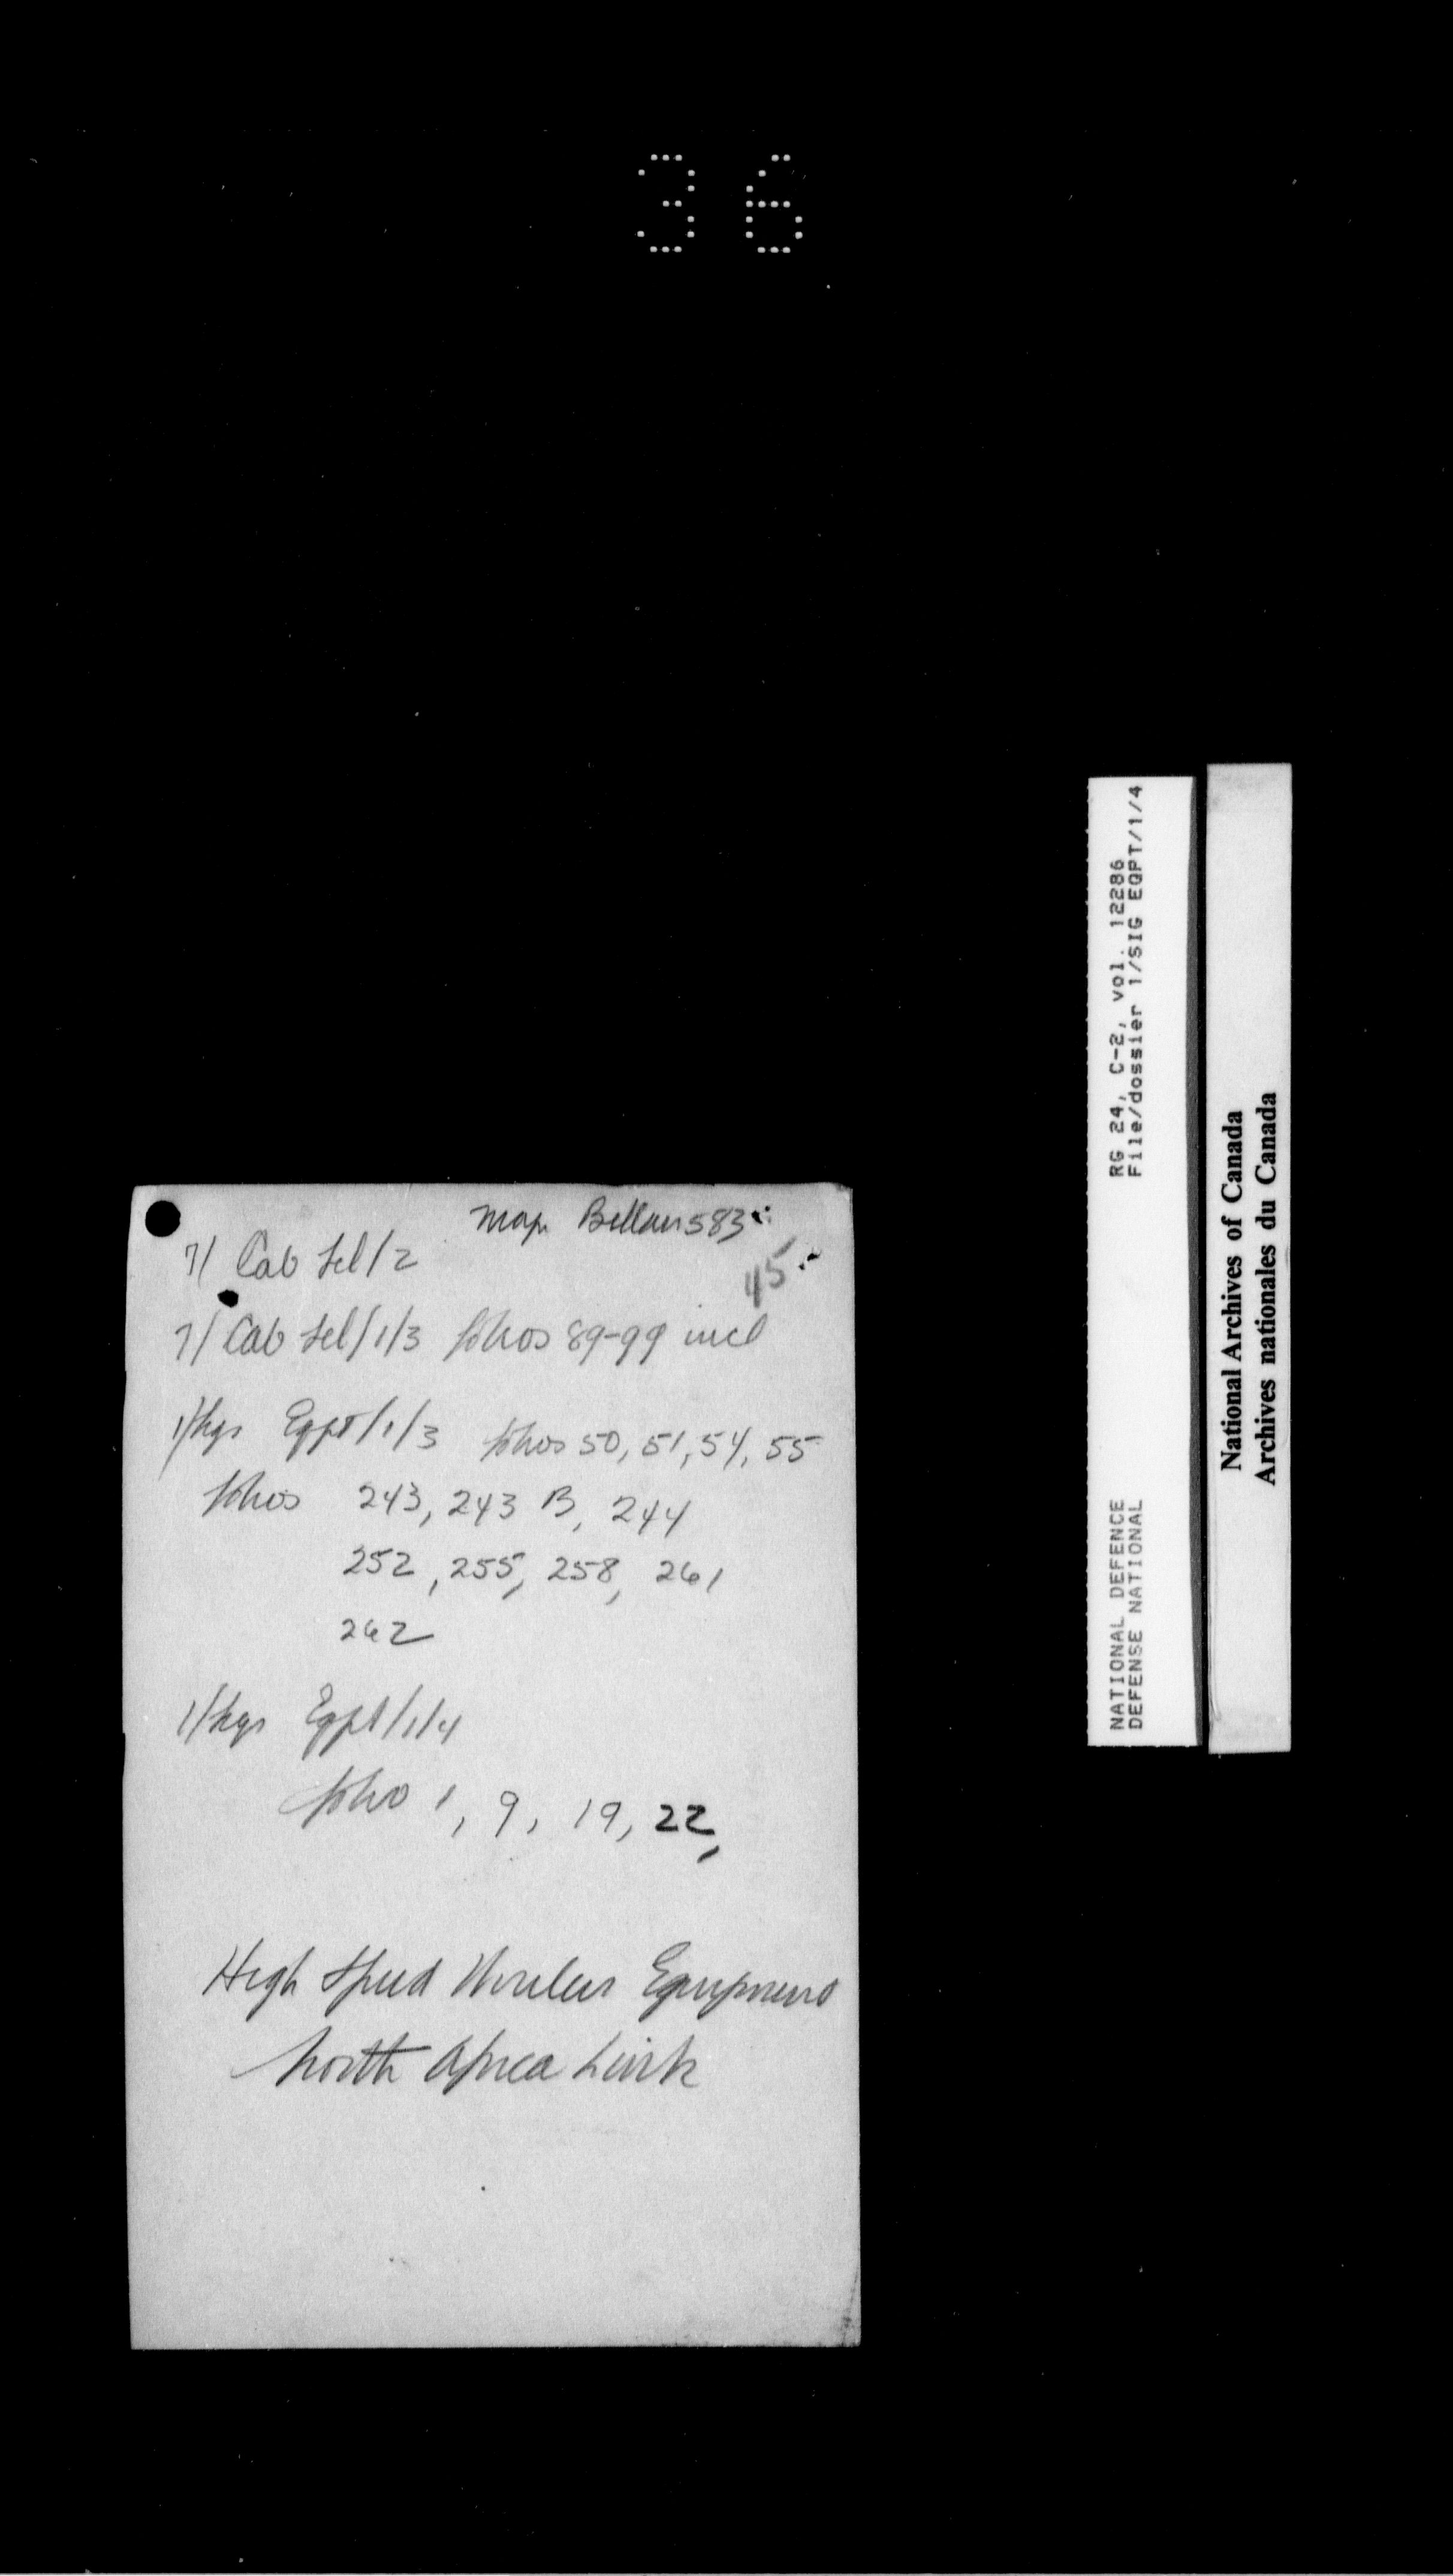 36
Maj. Bellan 583
7/ Cab Tel/2
45
7/ Cab Tel/1/3 folios 89-99 incl
1/Sigs Eqpt/1/3 folios 50, 51, 54, 55
folios 243, 243 B, 244
252, 255, 258, 261
262
1/Sigs Eqpt/1/4
folio 1, 9, 19, 22,
High Speed Wireless Equipment
North Africa Link
RG 24, C-2, vol. 12286
File/dossier 1/SIG EQPT/1/4
NATIONAL DEFENCE
DEFENSE NATIONAL
National Archives of Canada
Archives nationales du Canada